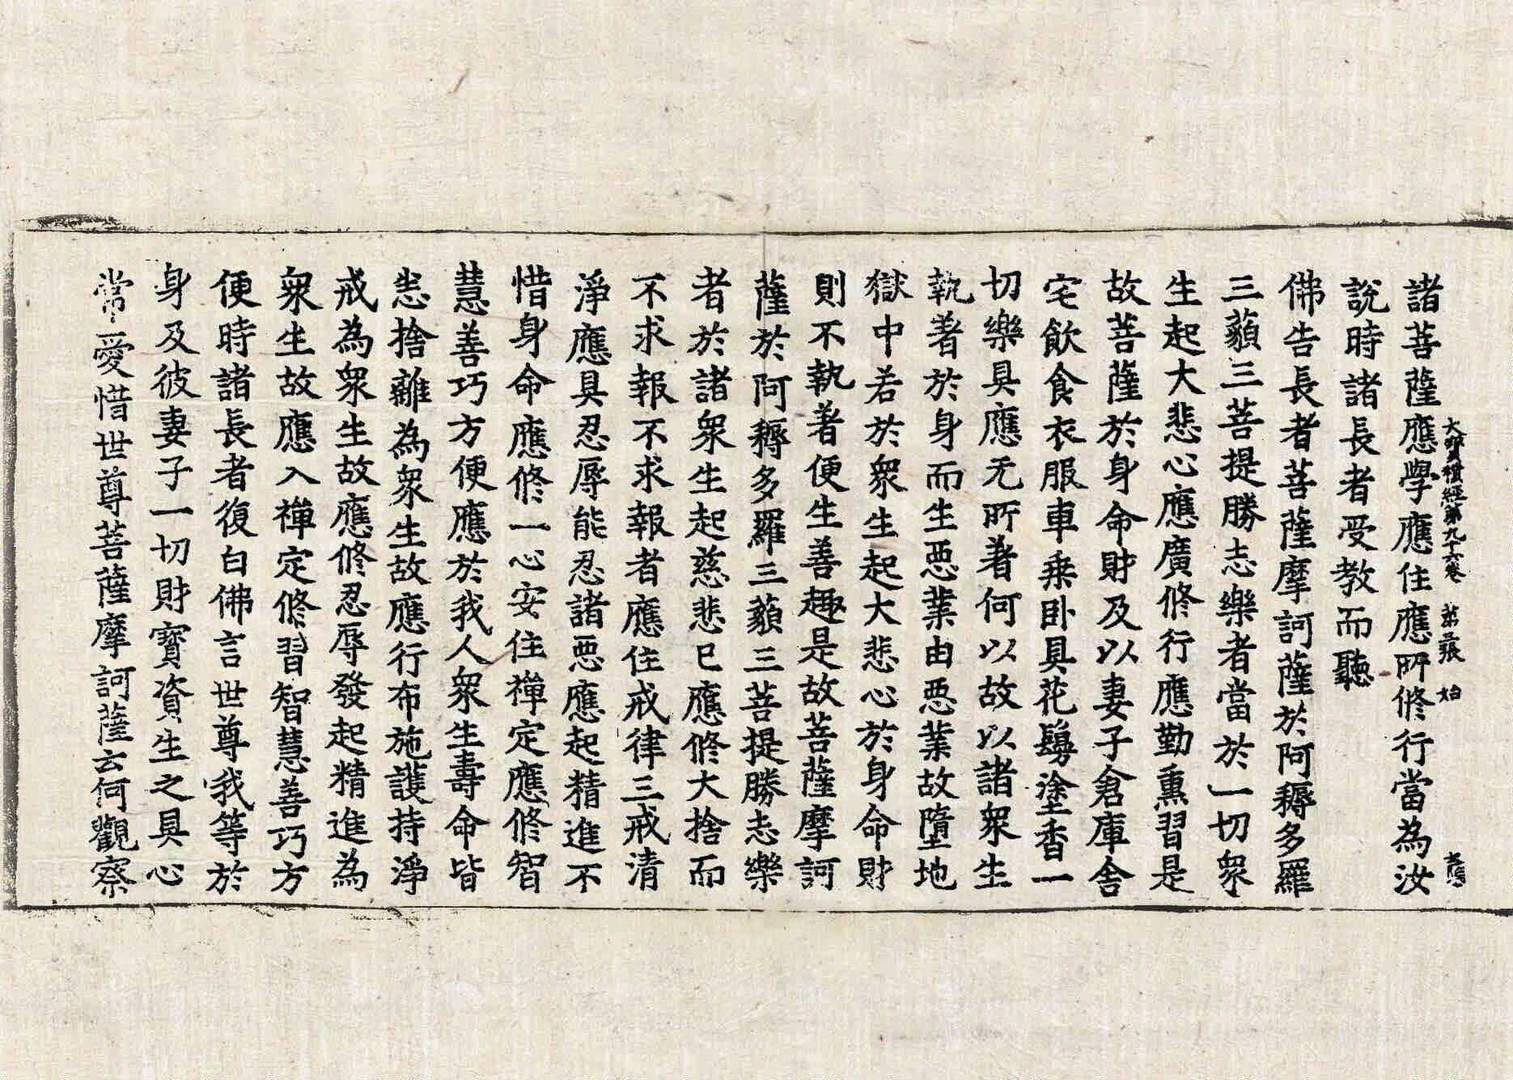 大寶積經第九十六卷 第三張 始
諸菩薩應學應住應所修行當為汝
說時諸長者受教而聽
佛告長者菩薩摩訶薩於阿耨多羅
三藐三菩提勝志樂者當於一切衆
生起大悲心應廣修行應勤熏習是
故菩薩於身命財及以妻子倉庫舍
宅飲食衣服車乗卧具花鬘塗香一
切樂具應无所著何以故以諸衆生
執著於身而生惡業由惡業故墮地
獄中若於衆生起大悲心於身命財
則不執著便生善趣是故菩薩摩訶
薩於阿耨多羅三藐三菩提勝志樂
者於諸衆生起慈悲已應修大捨而
不求報不求報者應住戒律三戒清
淨應具忍辱能忍諸惡應起精進不
惜身命應修一心安住禪定應修智
慧善巧方便應於我人衆生壽命皆
悉捨離為衆生故應行布施護持淨
戒為衆生故應修忍辱發起精進為
衆生故應入禪定修習智慧善巧方
便時諸長者復白佛言世尊我等於
身及彼妻子一切財寶資生之具心
常愛惜世尊菩薩摩訶薩云何觀察